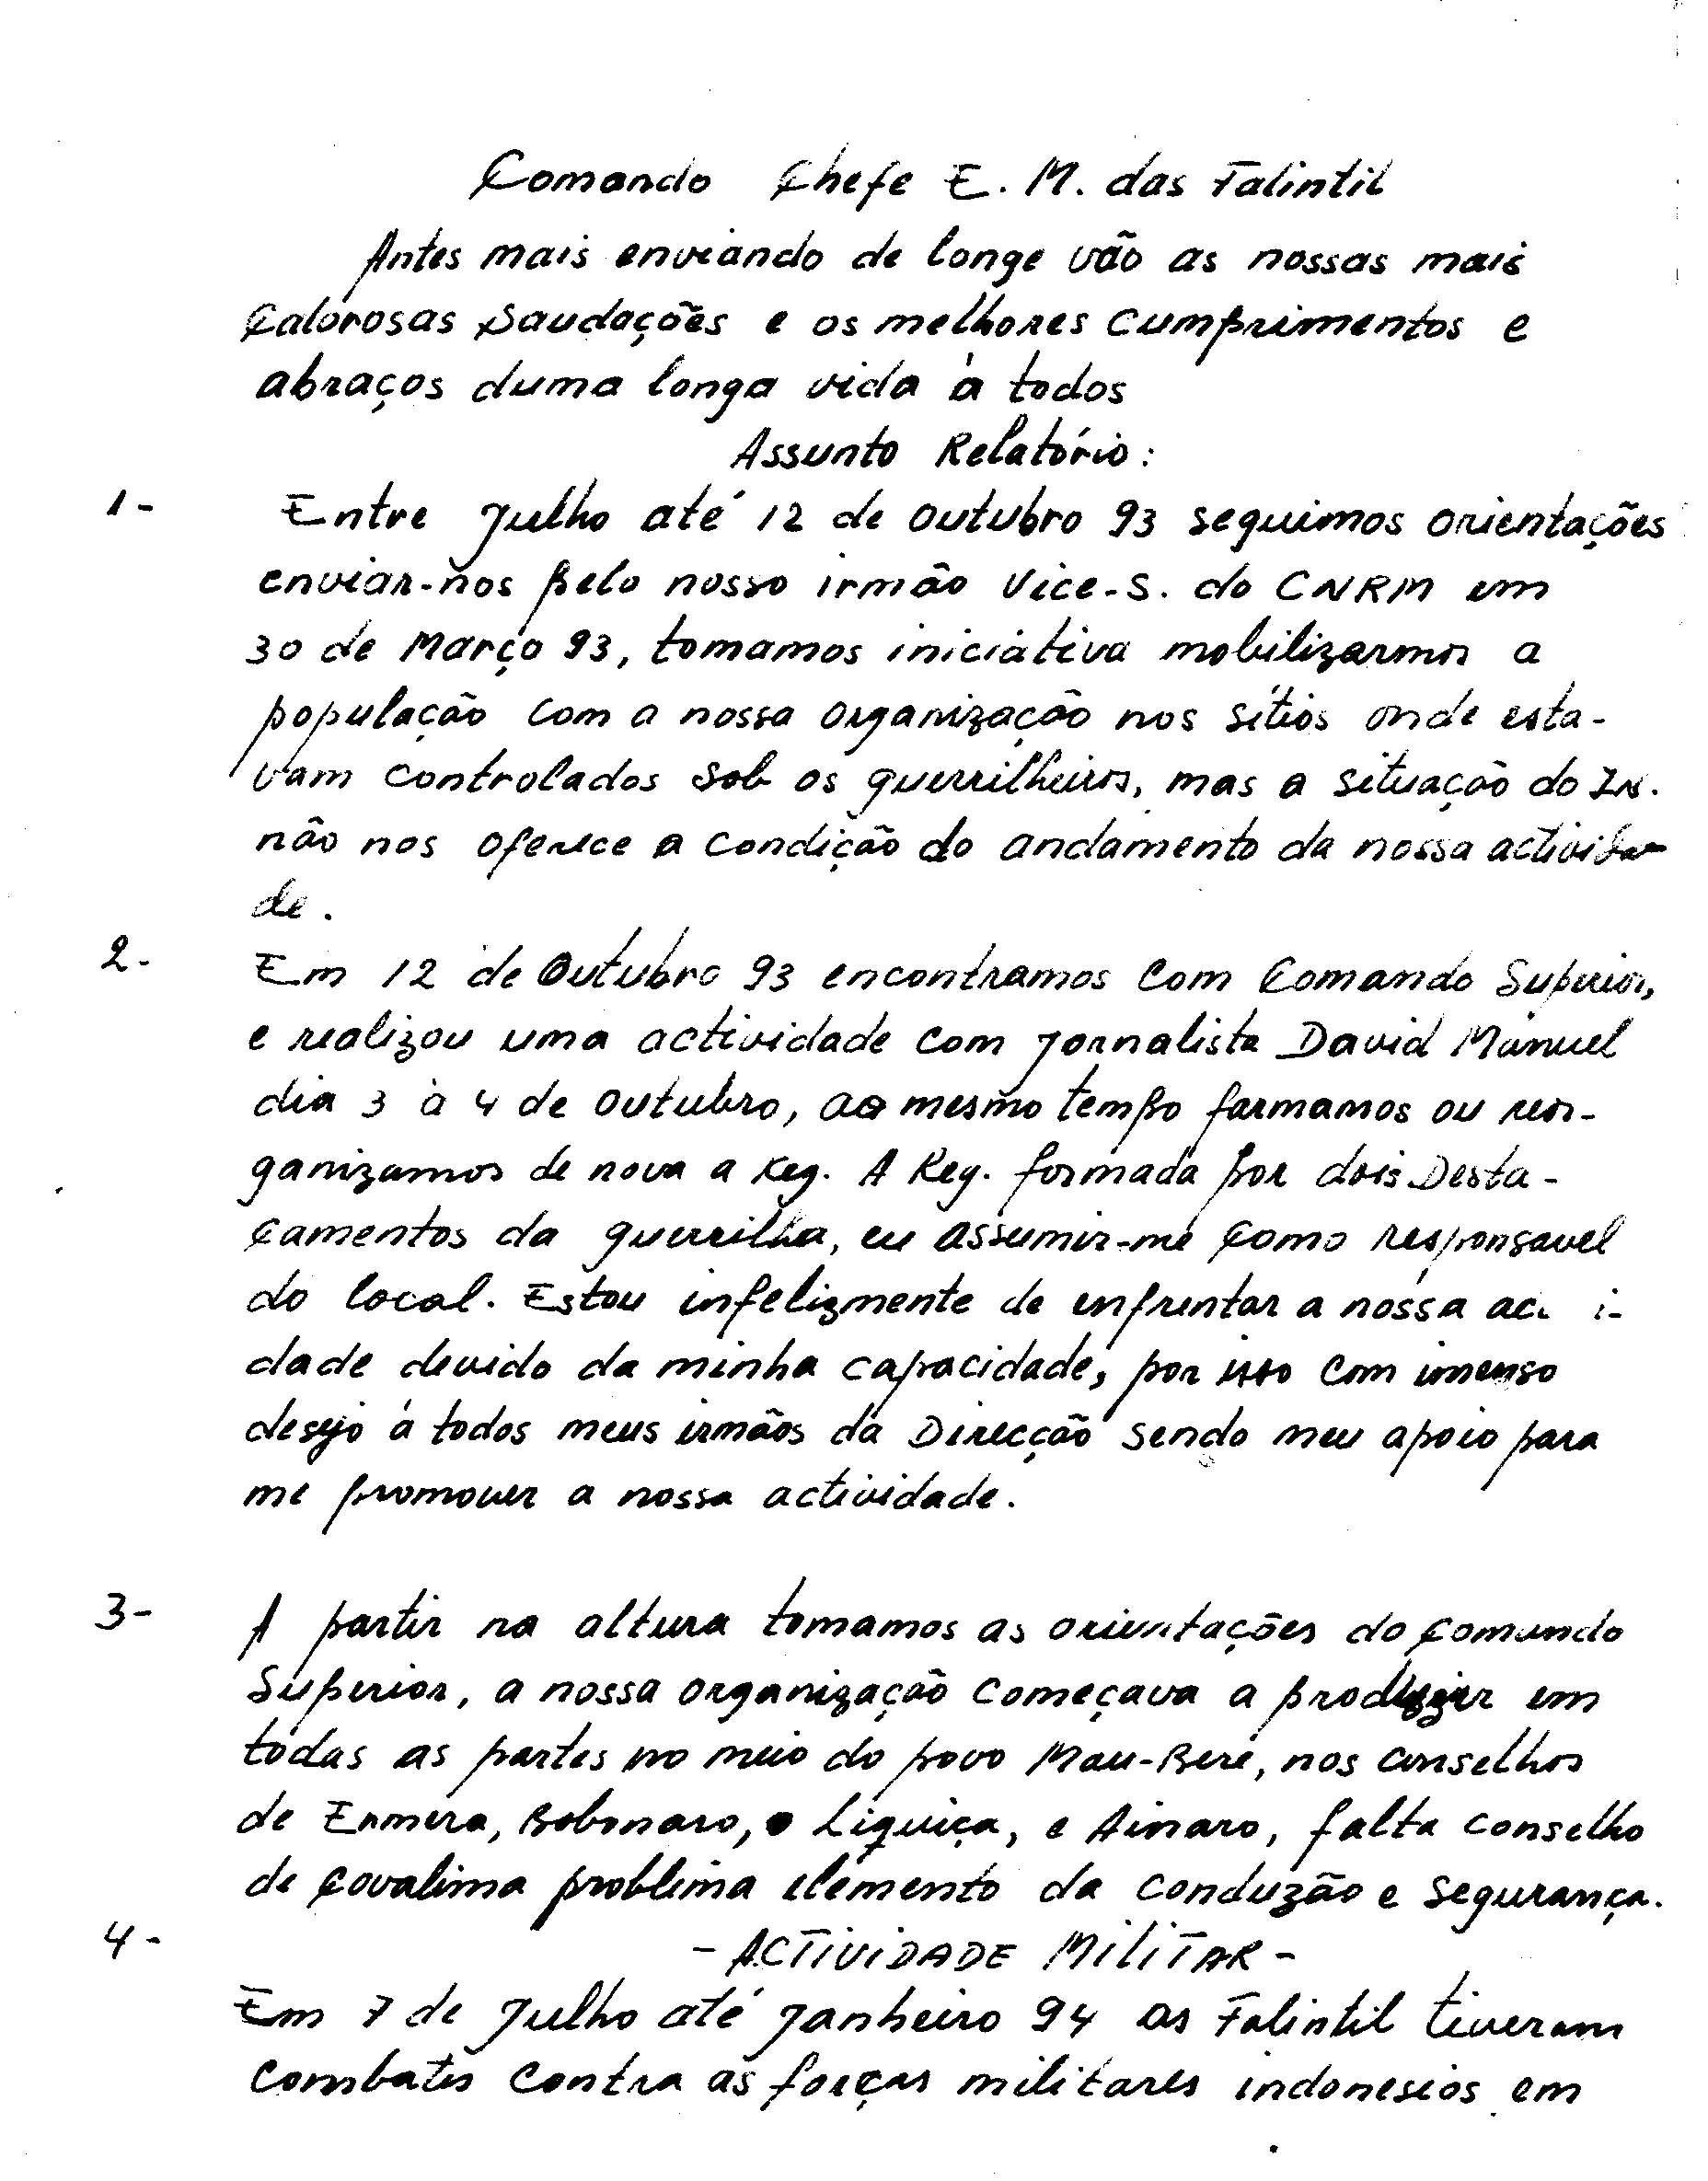 Comando Chefe E. M. das Falintil
Antes mais enviando de longe vão as nossas mais
Calorosas Saudações e os melhores cumprimentos e
abraços duma longa vida à todos
Assunto Relatório:
1- Entre Julho até 12 de Outubro 93 seguimos orientações
enviar-nos pelo nosso irmão Vice-S. do CNRM em
30 de Março 93, tomamos iniciativa mobilizarmos a
população com a nossa organização nos sítios onde esta-
vam controlados sob os guerrilheiros, mas a situação do IN.
não nos oferece a condição do andamento da nossa activida-
de.
2- Em 12 de Outubro 93 encontramos com Comando Superior,
e realizou uma actividade com Jornalista David Manuel
dia 3 à 4 de Outubro, ao mesmo tempo formamos ou reor-
ganizamos de nova a Reg. A Reg. formada por dois Desta-
camentos da guerrilha, eu assumir-me como responsavel
do local. Estou infelizmente de enfrentar a nossa ac i-
dade devido da minha capacidade, por isso com imenso
desejo à todos meus irmãos da Direcção sendo meu apoio para
me promover a nossa actividade.
3- A partir na altura tomamos as orientações do Comando
Superior, a nossa organização começava a produzir em
todas as partes no meio do povo Mau-Bere, nos conselhos
de Ermera, Bobonaro, Liquiça, e Ainaro, falta conselho
de Covalima problema elemento da conduzão e segurança.
4- - ACTIVIDADE MILITAR -
Em 7 de Julho até Janheiro 94 as Falintil tiveram
combates contra as forças militares indonesios em